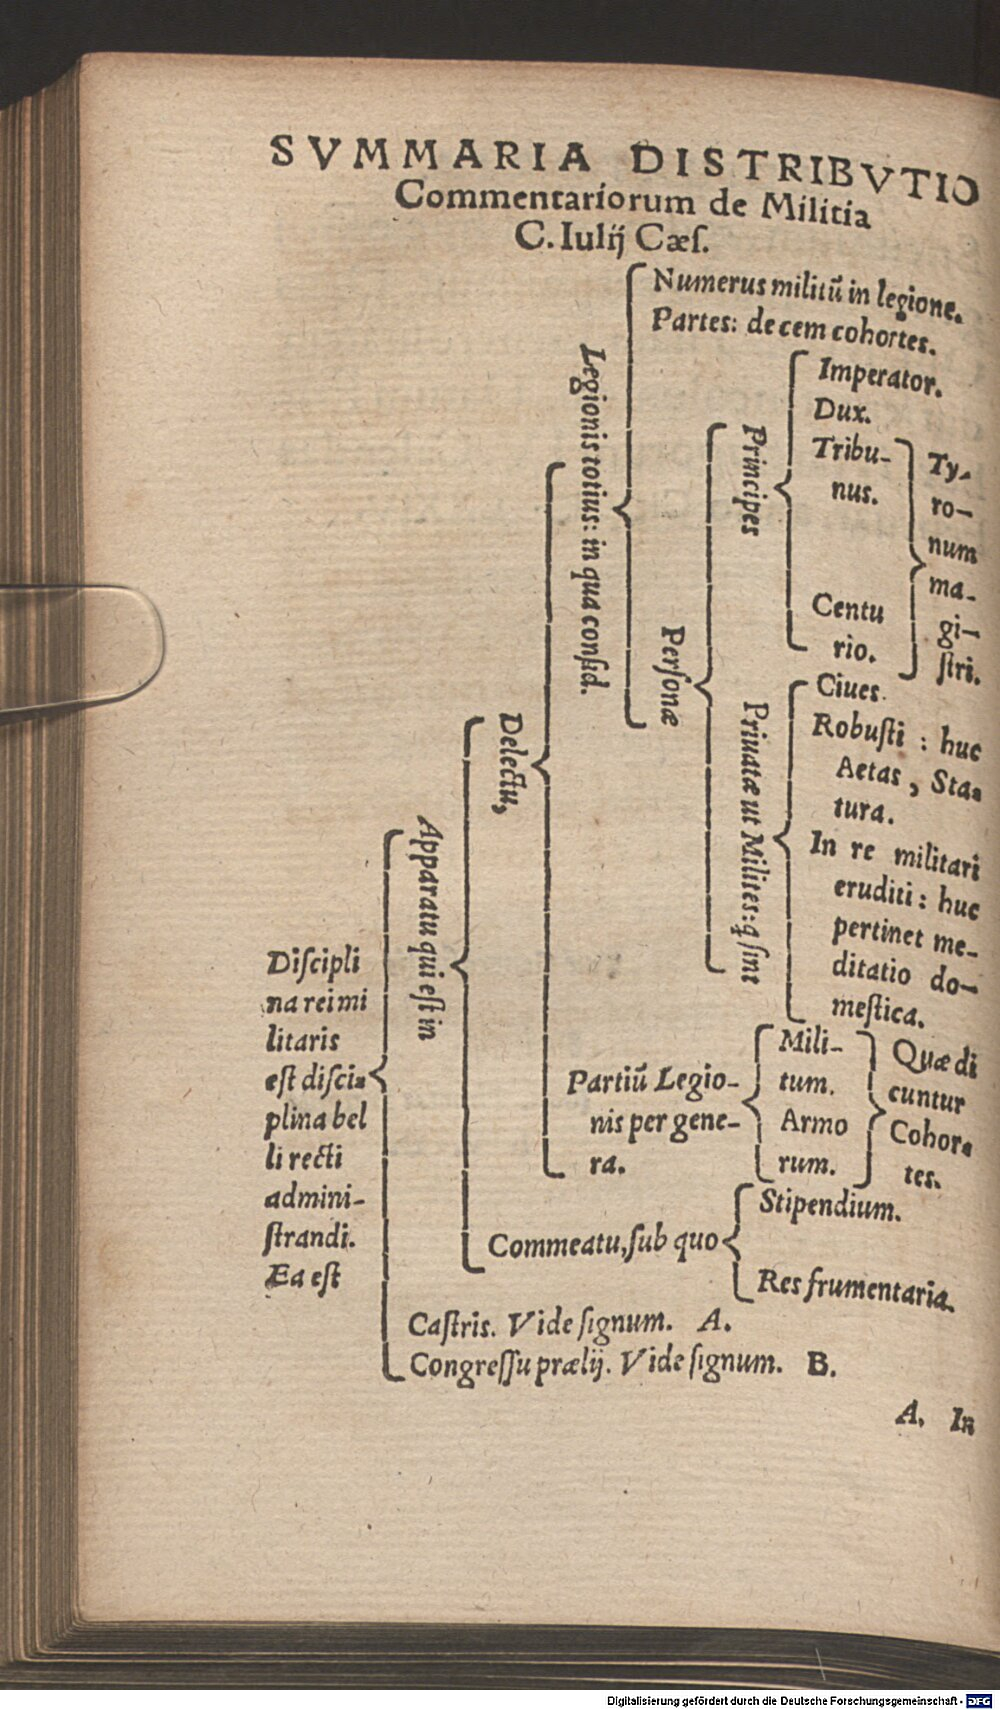 SVMMARIA DISTRIBVTIO
Commentariorum de Militia
C. Iulij Cæſ.
Diſcipli
na rei mi
litaris
eſt diſci⸗
plina bel
li recti
admini-
ſtrandi.
Ea eſt
Apparatu qui eſt in
Delectu,
Legionis totius: in qua conſid.
Numerus militū in legione.
Partes: decem cohortes.
Perſonæ
Principes
Imperator.
Dux.
Tribu-
nus.
Centu
rio.
Ty-
ro-
num
ma-
gi-
ſtri.
Priuatæ ut Milites: q̃ ſint
Ciues.
Robuſti : huc
Aetas, Sta⸗
tura.
In re militari
eruditi : huc
pertinet me-
ditatio do-
meſtica.
Partiū Legio-
nis per gene-
ra.
Mili-
tum.
Armo
rum.
Quæ di
cuntur
Cohor⸗
tes.
Commeatu, ſub quo
Stipendium.
Res frumentaria.
Caſtris. Vide ſignum. A.
Congreſſu prælij. Vide ſignum. B.
A. In
Digitalisierung gefördert durch die Deutsche Forschungsgemeinschaft - DFG